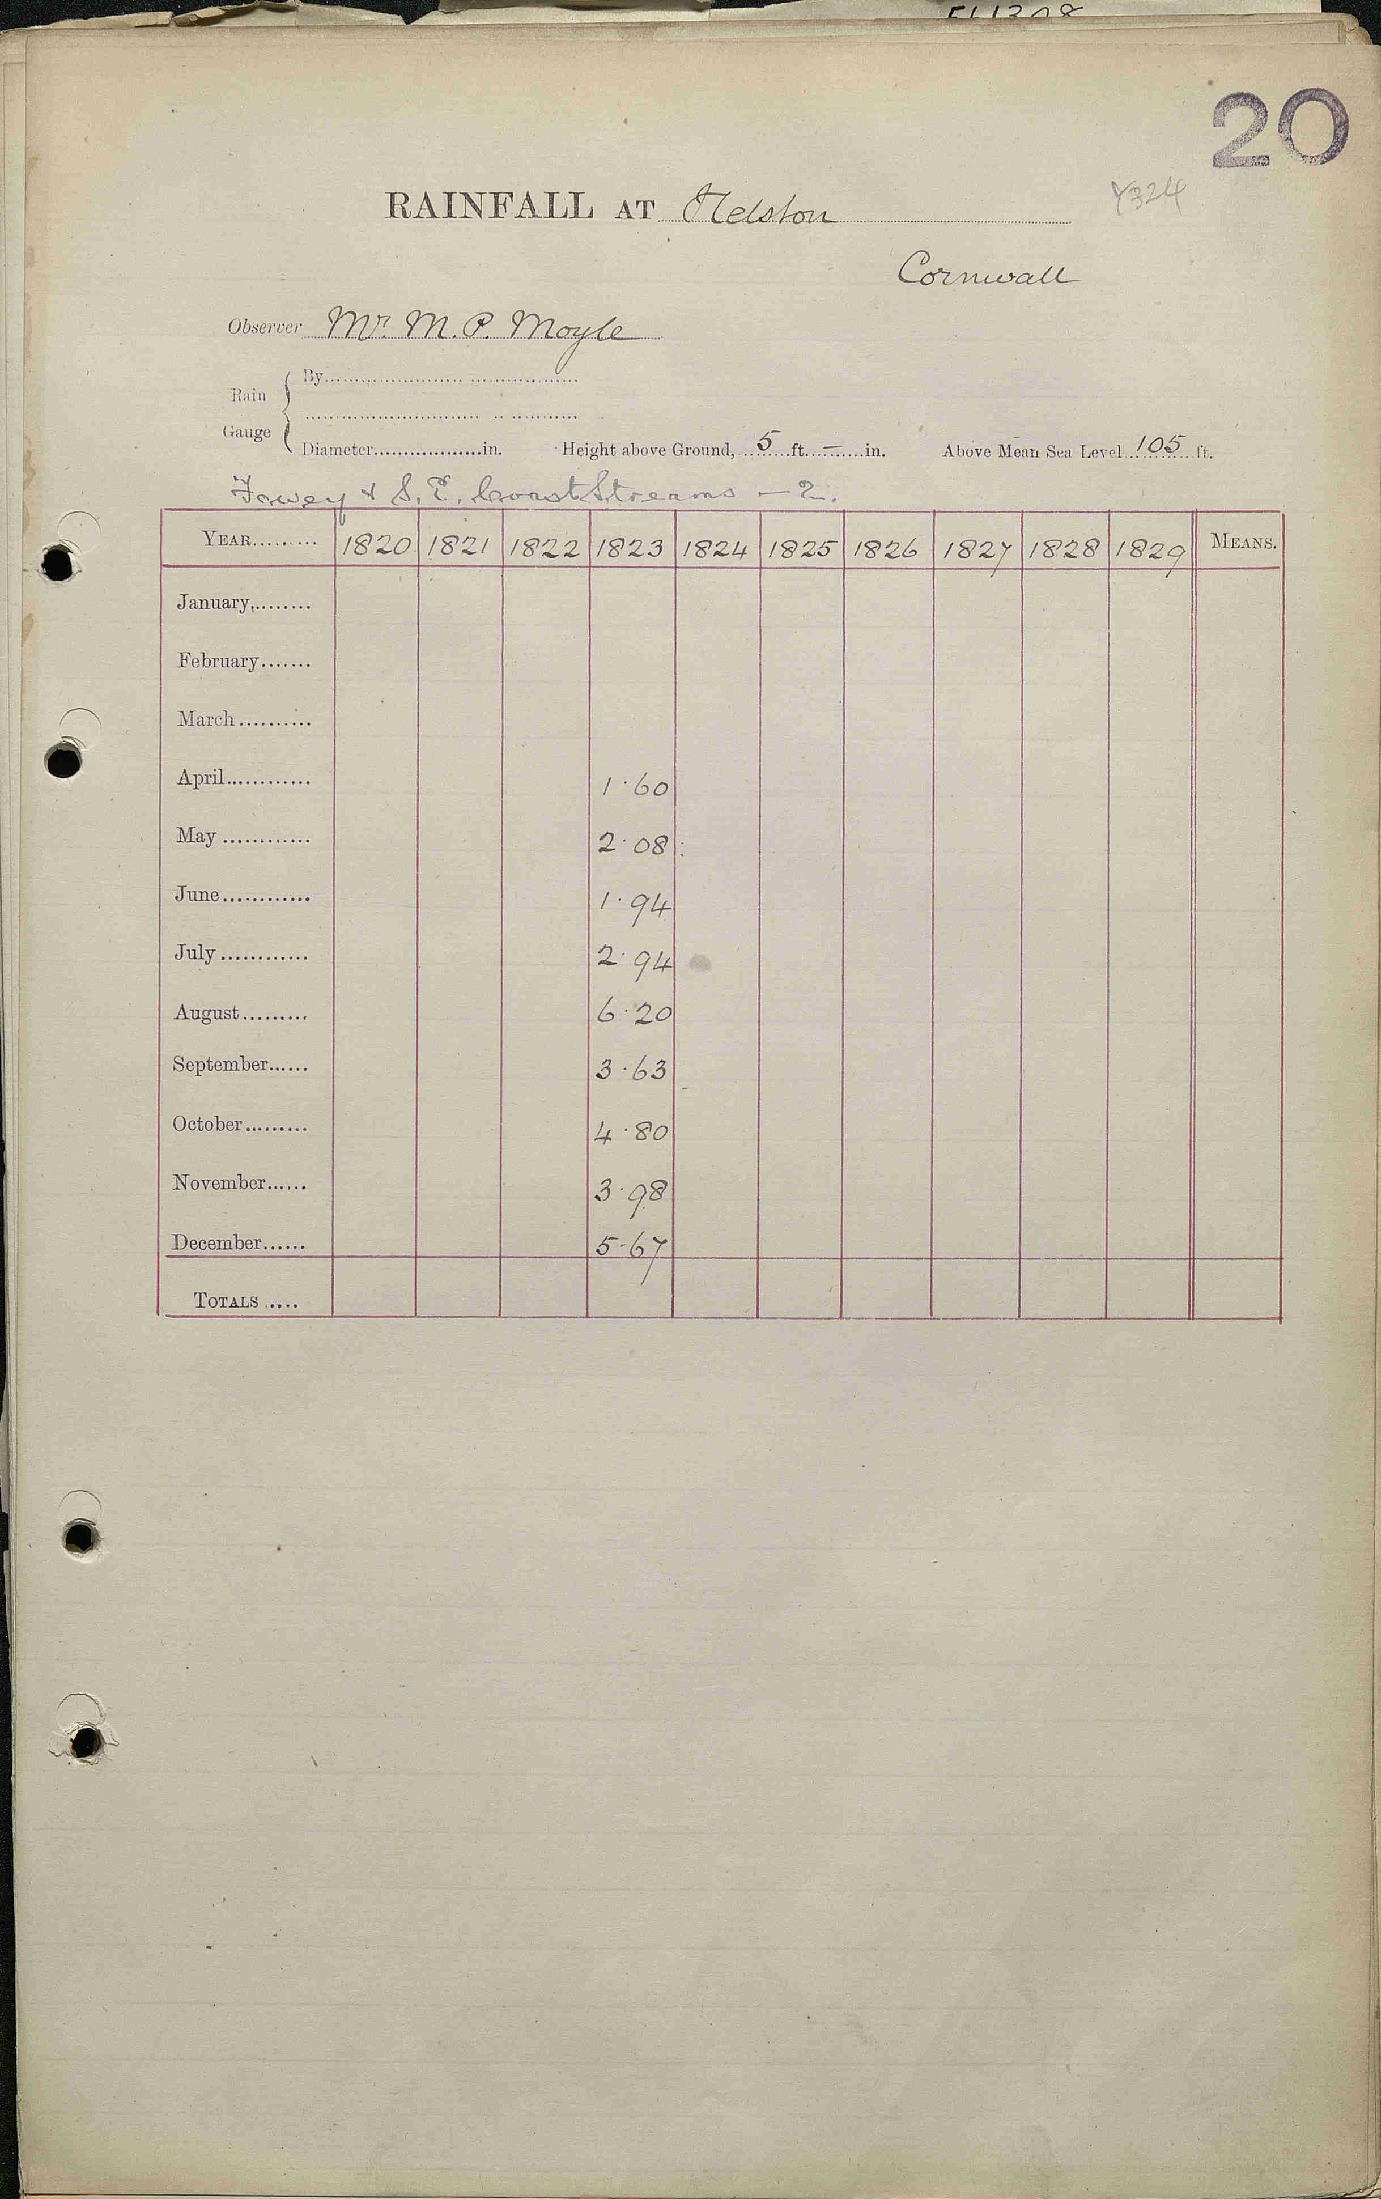 20
RAINFALL AT Helston
Y324
Cornwall
Observer Mr. M. P. Moyle
Rain Gauge { By
Diameter in. Height above Ground, 5 ft. — in. Above Mean Sea Level 105 ft.
Fowey & S. E. Coast Streams — 2.
YEAR 1820 1821 1822 1823 1824 1825 1826 1827 1828 1829 MEANS.
January
February
March
April 1.60
May 2.08
June 1.94
July 2.94
August 6.20
September 3.63
October 4.80
November 3.98
December 5.67
TOTALS